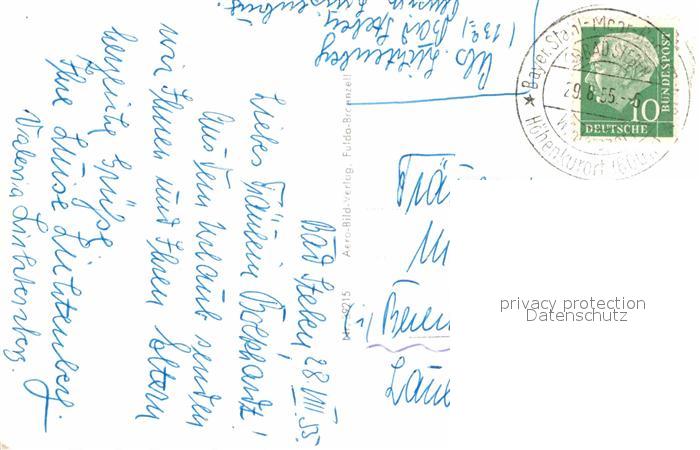 Bad Steben 28 VIII. 55.
Liebes Fräulein Bockhardt!
Aus dem Urlaub senden
wir Ihnen und Ihren Eltern
herzliche Grüße
Ihre Luise Lichtenberg
Valeria Lichtenberg.
Abs. Lichtenberg
(13a) Bad Steben
Nr. 19215 Aero-Bild-Verlag, Fulda-Bronnzell
Bayer. Staatl.
BAD STEBEN
29.8.55.
Höhenkurort
10
DEUTSCHE
BUNDESPOST
Frä
Beren
privacy protection
Datenschutz